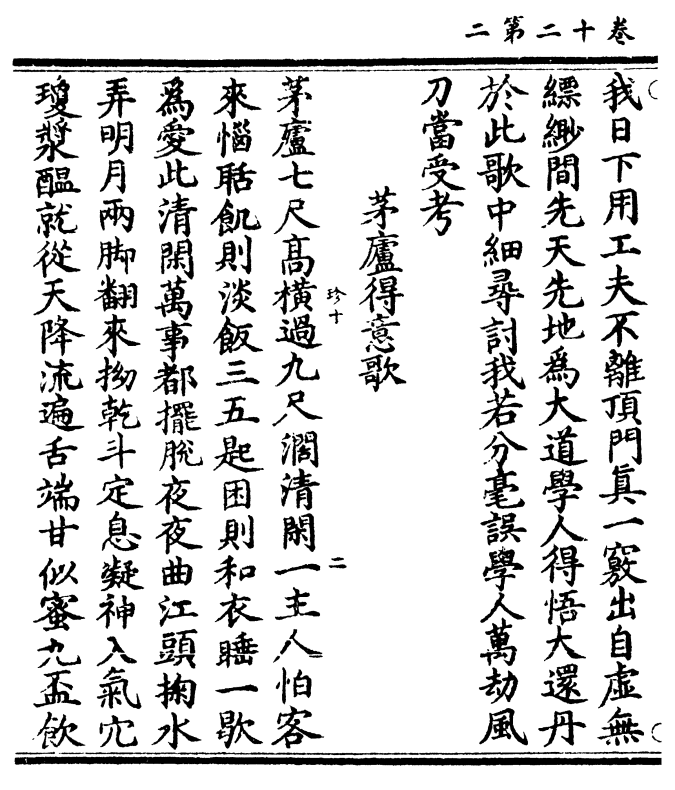 卷十二第二
我日下用工夫不離頂門眞一竅出自虛無
縹緲間先天先地爲大道學人得悟大還丹
於此歌中細尋討我若分毫誤學人萬劫風
刀當受考
茅廬得意歌
茅廬七尺高橫過九尺濶清閑一主人怕客
珍十
二
來惱聒飢則淡飯三五匙困則和衣睡一歇
爲愛此清閑萬事都擺脫夜夜曲江頭掬水
弄明月兩脚翻來拗乾斗定息凝神入氣穴
瓊漿醞就從天降流遍舌端甘似蜜九盃飲